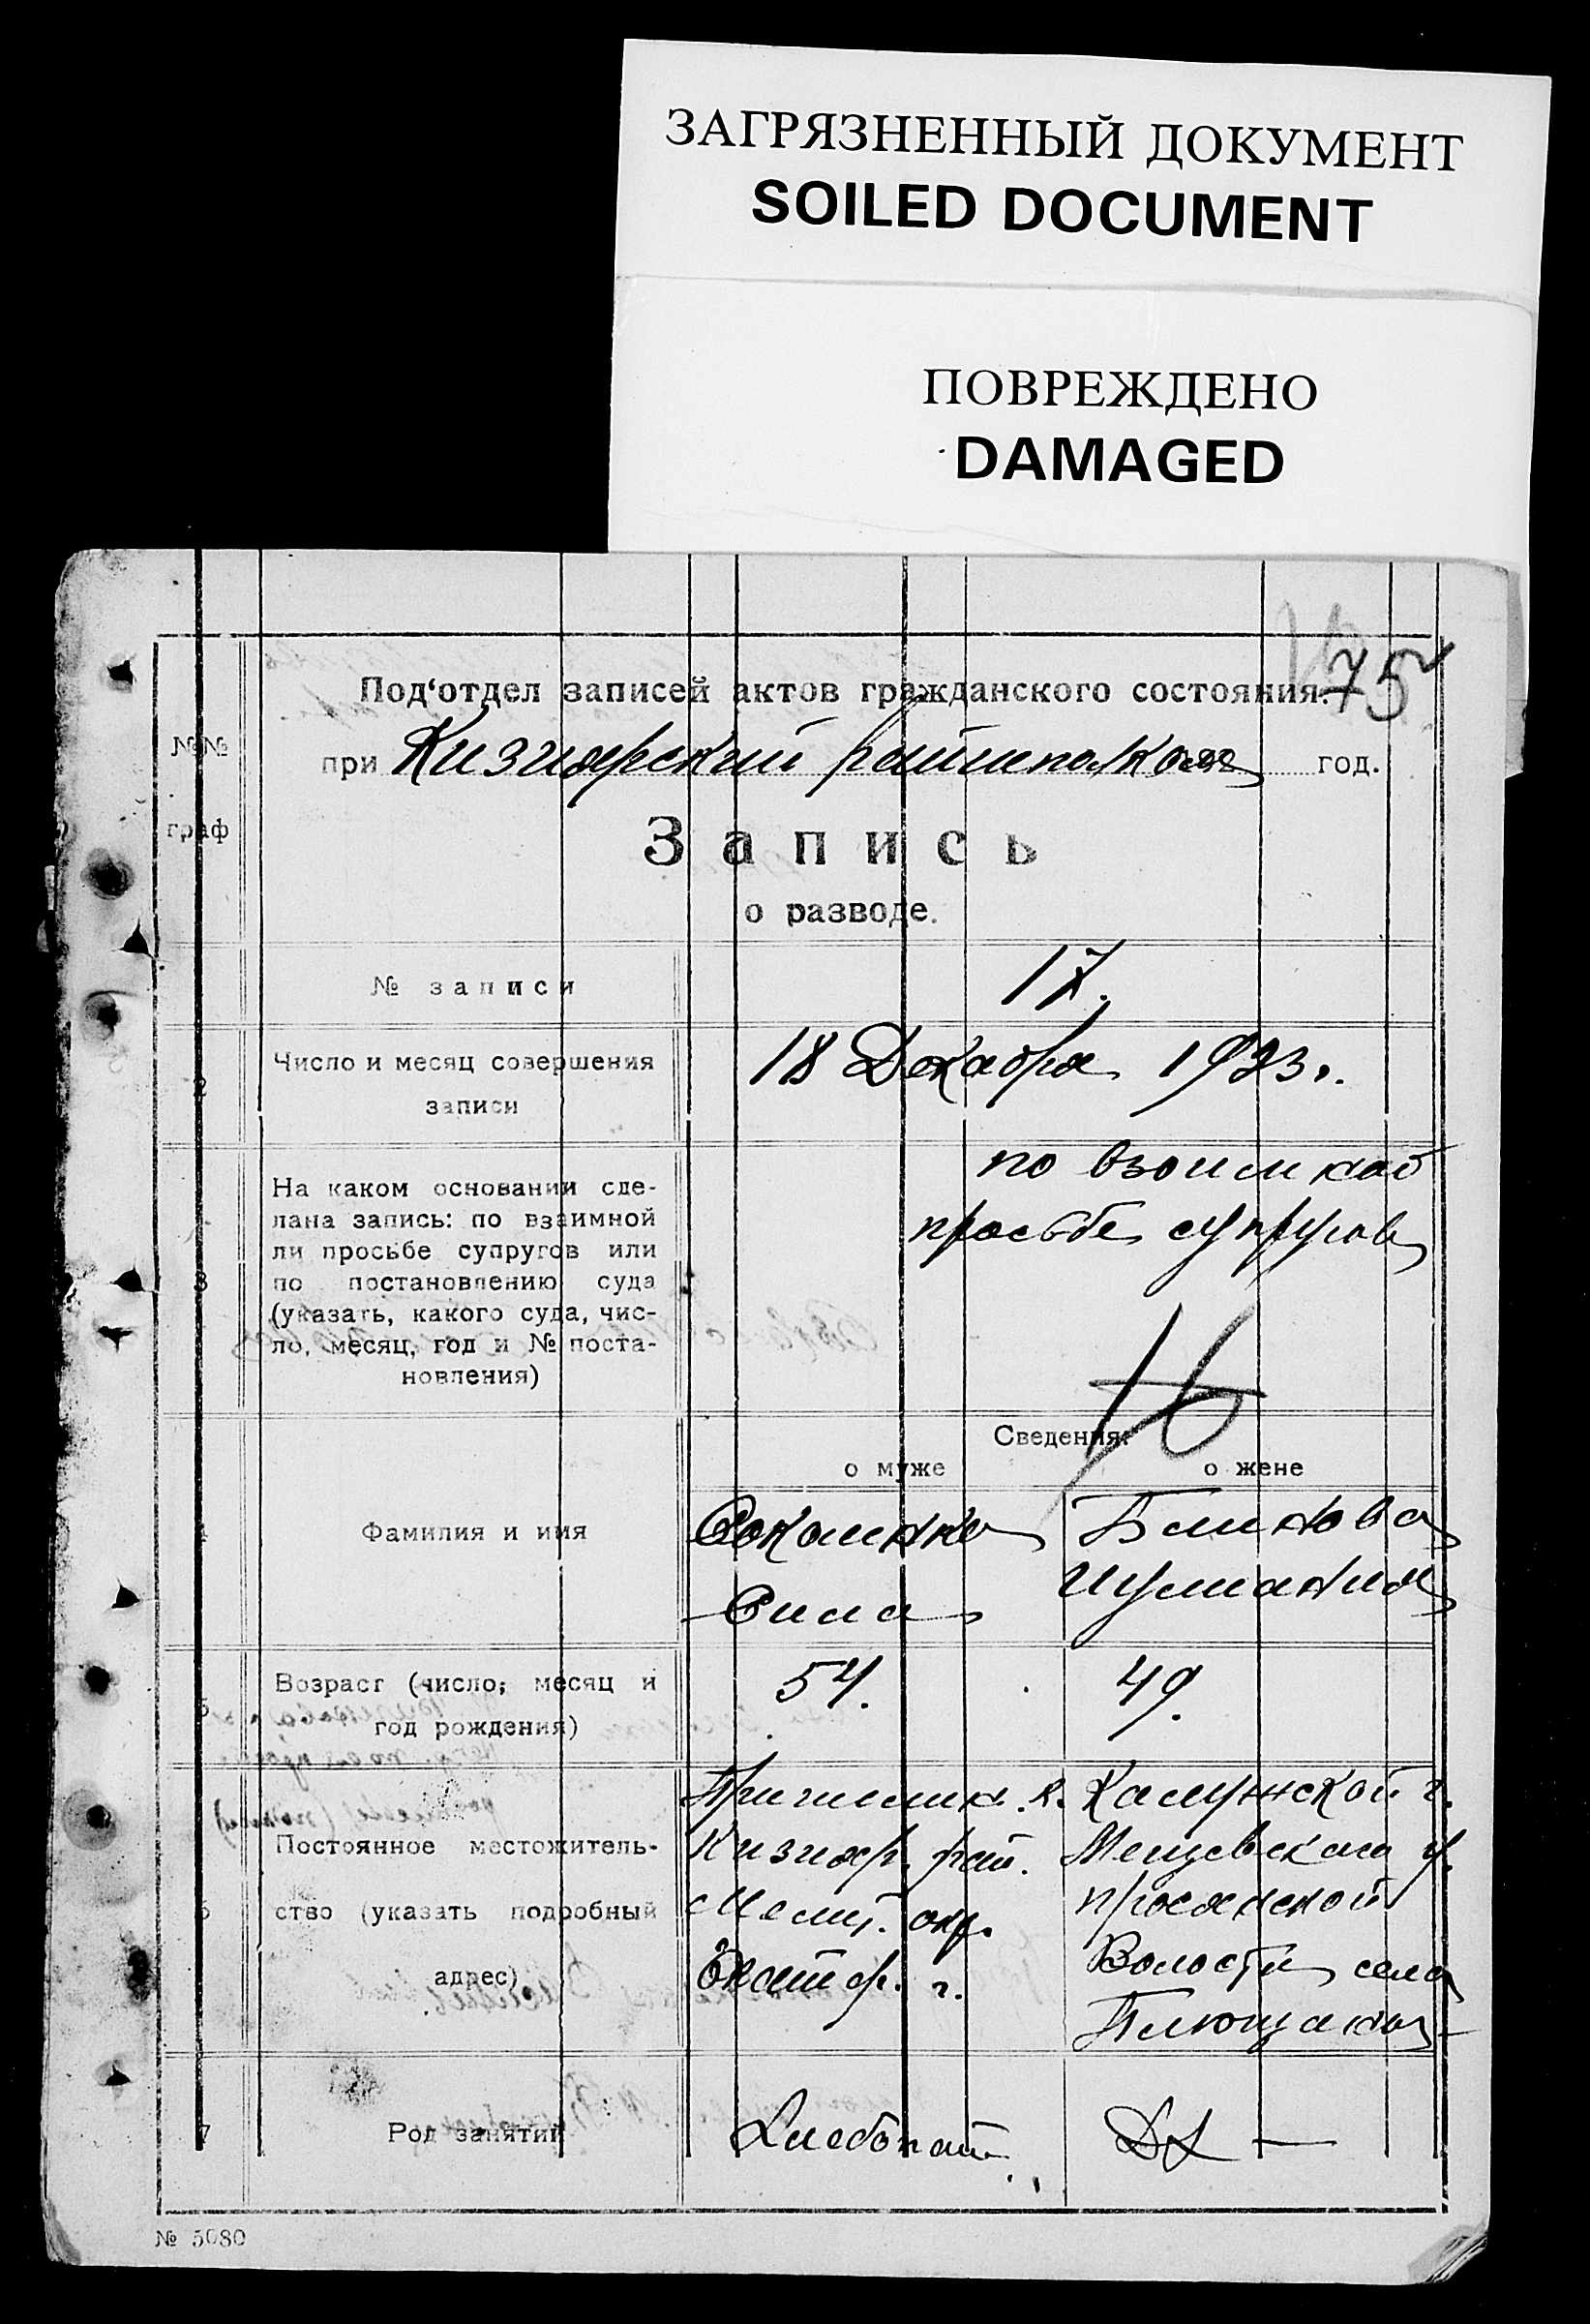 ЗАГРЯЗНЕННЫЙ ДОКУМЕНТ
SOILED DOCUMENT
ПОВРЕЖДЕНО
DAMAGED
75
Под‘отдел записей актов гражданского состояния.
№№ граф
при Кизиярский год.
Запись
о разводе.
№ записи 17.
2 Число и месяц совершения записи 18 Декабря 1923 г.
3 На каком основании сде-
лана запись: по взаимной
ли просьбе супругов или
по постановлению суда
(указать, какого суда, чис-
ло, месяц, год и № поста-
новления)
по взоимной
просьбе супругов
16
Сведения:
о муже о жене
4 Фамилия и имя
Сила Блинова
5 Возраст (число, месяц и
год рождения)
54. 49.
6 Постоянное местожитель-
ство (указать подробный
адрес)
Кизияр. рай.
Мелит. окр.
г.
Калужской г.
Мещевского у.
Волости села
7 Род занятий Хлебопаш. Дх —
№ 5080